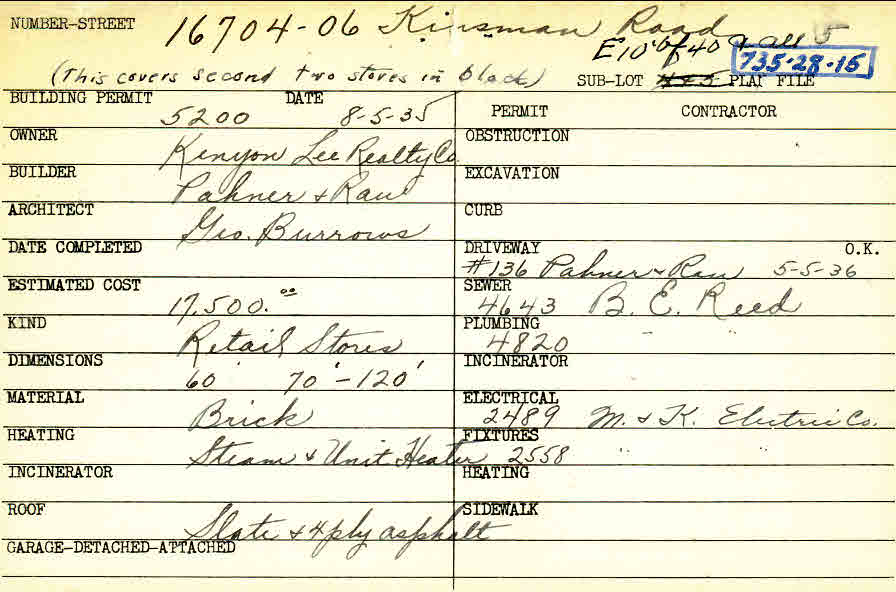 NUMBER-STREET 16704-06 Kinsman Road
E 10' of 40 & all 5
(This covers second two stores in block) SUB-LOT PLAT FILE 735-28-15
BUILDING PERMIT 5200 DATE 8-5-35
PERMIT CONTRACTOR
OWNER Kenyon Lee Realty Co.
OBSTRUCTION
BUILDER Pahner & Rau
EXCAVATION
ARCHITECT Geo. Burrows
CURB
DATE COMPLETED
DRIVEWAY #136 Pahner & Rau 5-5-36 O.K.
ESTIMATED COST 17,500.00
SEWER 4643 B. E. Reed
KIND Retail Stores
PLUMBING 4820 "
DIMENSIONS 60 70' - 120'
INCINERATOR
MATERIAL Brick
ELECTRICAL 2489 M. & K. Electric Co.
HEATING Steam & Unit Heater
FIXTURES 2558 " "
INCINERATOR
HEATING
ROOF Slate & 4 ply asphalt
SIDEWALK
GARAGE-DETACHED-ATTACHED